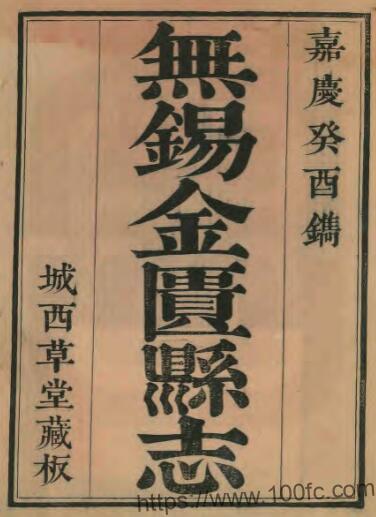 嘉慶癸酉鐫
無錫金匱縣志
城西草堂藏板
https://www.100fc.com